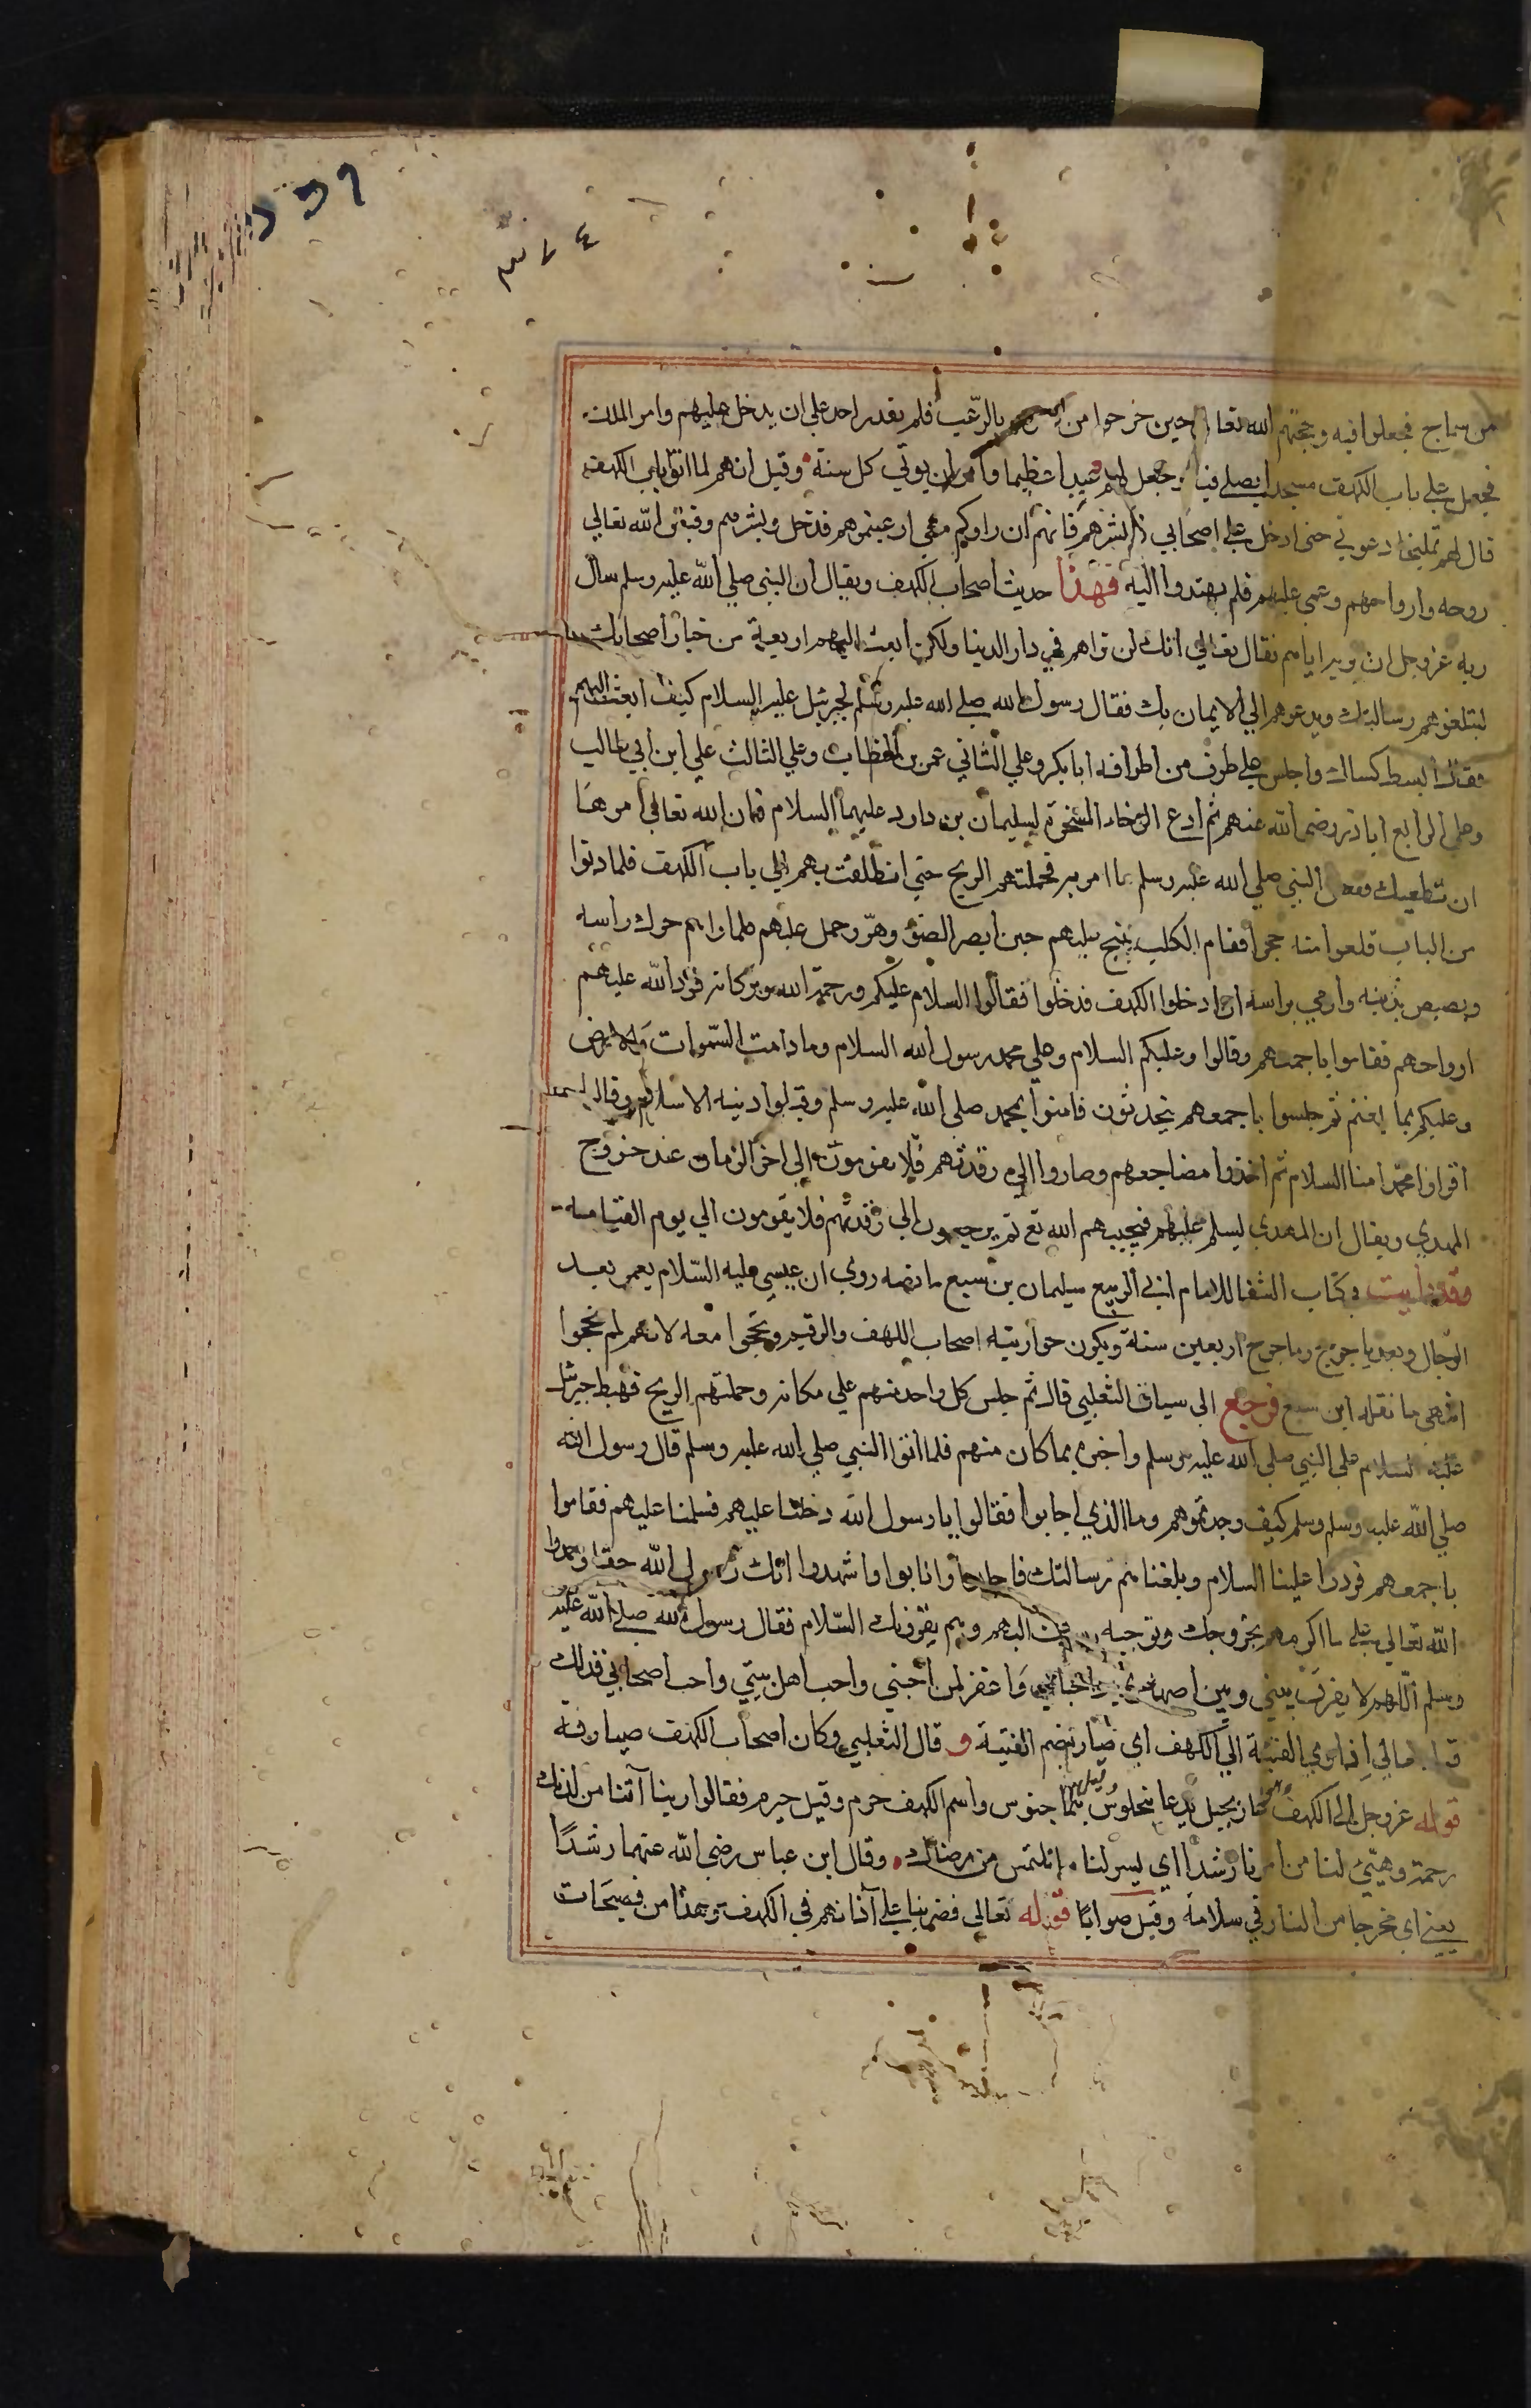 ٣٧٤
من ساج فجعلوا فيه وحجبهم الله تعالى حين خرجوا من بالرّعب فلم يقدر احد علي ان يدخل عليهم وامر الملك
فجعل علي باب الكهف مسجدا يصلي فيه وجعل لهم عيدا عظيما وامر ان يوتي كل سنة وقيل انهم لما اتوا باب الكهف
قال لهم تمليخا دعوني حتى ادخل علي اصحابي فابشرهم فانهم ان راوكم معي ارعبتموهم فدخل وبشرهم وقبض الله تعالي
روحه وارواحهم وعمي عليهم فلم يهتدوا اليه فهذا حديث اصحاب الكهف ويقال ان النبي صلي الله عليه وسلم سال
ربه عز وجل ان يريه اياهم فقال تعالي انك لن تراهم في دار الدنيا ولكن ابعث اليهم اربعة من خيار اصحابك
ليبلغوهم رسالتك ويدعوهم الي الايمان بك فقال رسول الله صلي الله عليه وسلم لجبرئيل عليه السلام كيف ابعث اليهم
فقال ابسط كساك واجلس علي طرف من اطرافه ابا بكر وعلي الثاني عمر بن الخطاب وعلي الثالث علي ابن ابي طالب
وعلي الرابع ابا ذر رضي الله عنهم ثم ادع الرخاء المسخرة لسليمان بن داود عليهما السلام فان الله تعالي امرها
ان تطيعك ففعل النبي صلي الله عليه وسلم ما امر به فحملتهم الريح حتي انطلقت بهم الي باب الكهف فلما دنوا
من الباب قلعوا منه حجرا فقام الكلب ينبح عليهم حين ابصر الضوء وهرّ وحمل عليهم فلما راهم حرك راسه
وبصبص بذنبه واومي براسه ان ادخلوا الكهف فدخلوا فقالوا السلام عليكم ورحمة الله وبركاته فرد الله عليهم
ارواحهم فقاموا باجمعهم وقالوا وعليكم السلام وعلي محمد رسول الله السلام وما دامت السموات والارض
وعليكم بما ابلغتم ثم جلسوا باجمعهم يتحدثون فامنوا بمحمد صلي الله عليه وسلم وقبلوا دينه الاسلام وقالوا
اقراوا محمدا منا السلام ثم اخذوا مضاجعهم وصاروا الي رقدتهم فلا يقومون الي اخر الزمان عند خروج
المهدي ويقال ان المهدي ليسلم عليهم فيحييهم الله تع ثم يرجعون الي رقدتهم فلا يقومون الي يوم القيامة
وقد رايت في كتاب الشفا للامام ابي الربيع سليمان بن سبع ما نصه روي ان عيسي عليه السلام يعمر بعد
الدجال وبعد ياجوج وماجوج اربعين سنة ويكون حواريته اصحاب الكهف والرقيم ويحجوا معه لانهم لم يحجوا
انتهي ما نقله ابن سبع فرجع الى سياق الثعلبي قال ثم جلس كل واحد منهم علي مكانه وحملتهم الريح فهبط جبرئيل
عليه السلام علي النبي صلي الله عليه وسلم واخبره بما كان منهم فلما اتوا النبي صلي الله عليه وسلم قال رسول الله
صلي الله عليه وسلم وسلم كيف وجدتموهم وما الذي اجابوا فقالوا يا رسول الله دخلنا عليهم فسلمنا عليهم فقاموا
باجمعهم فردوا علينا السلام وبلغناهم رسالتك فاجابوا وانابوا وشهدوا انك رسول الله حقا وحمدوا
الله تعالي علي ما اكرمهم بخروجك وتوجيه اليهم وهم يقرونك السلام فقال رسول الله صلي الله عليه
وسلم اللهم لا يفرق بيني وبين اصهاري واحبابي واغفر لمن احبني واحب اهل بيتي واحب اصحابي فذلك
قوله تعالي اذ اوي الفتية الي الكهف اي صار نضم الفتية و قال الثعلبي وكان اصحاب الكهف صيارفة
قوله عز وجل الى الكهف هو غار بجبل يدعا منجلوس وقيل بنجا جنوس واسم الكهف حرم وقيل حيرم فقالوا ربنا آتنا من لدنك
رحمة وهيّئ لنا من امرنا رشدا اي يسر لنا ما نلتمس من مرضاتك وقال ابن عباس رضي الله عنهما رشدًا
يعني اي مخرجا من النار في سلامة وقيل صوابًا قوله تعالي فضربنا علي آذانهم في الكهف وهذا من فصيحات